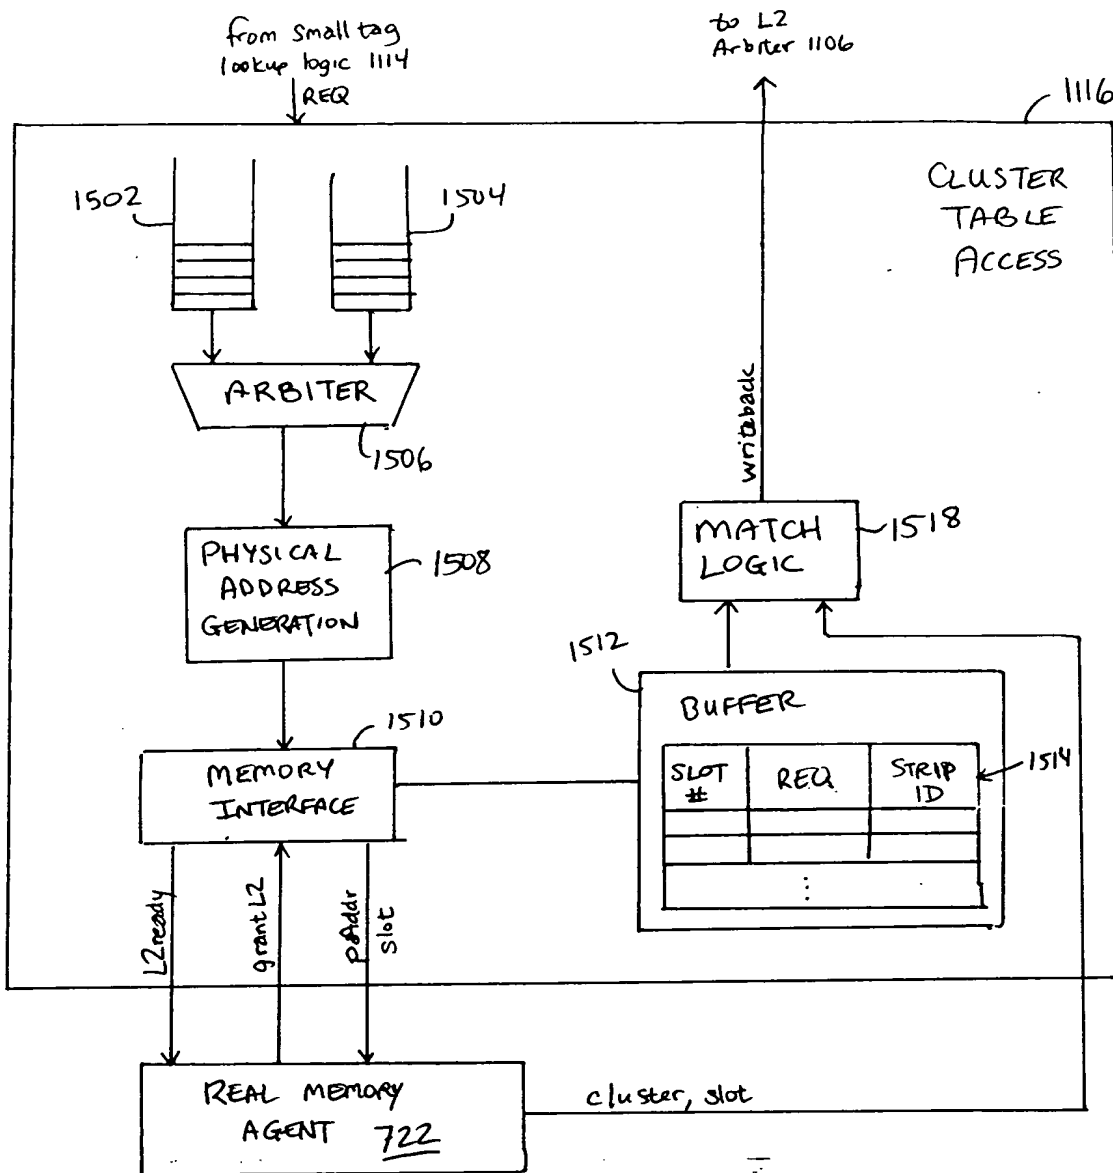 from small tag
lookup logic 1114
REQ
to L2
Arbiter 1106
1116
CLUSTER
TABLE
ACCESS
1502
1504
ARBITER
1506
PHYSICAL
ADDRESS
GENERATION
1508
writeback
MATCH
LOGIC
1518
1510
MEMORY
INTERFACE
1512
BUFFER
SLOT
#
REQ
STRIP
ID
1514
⋮
L2ready
grantL2
pAddr
slot
REAL MEMORY
AGENT 722
cluster, slot